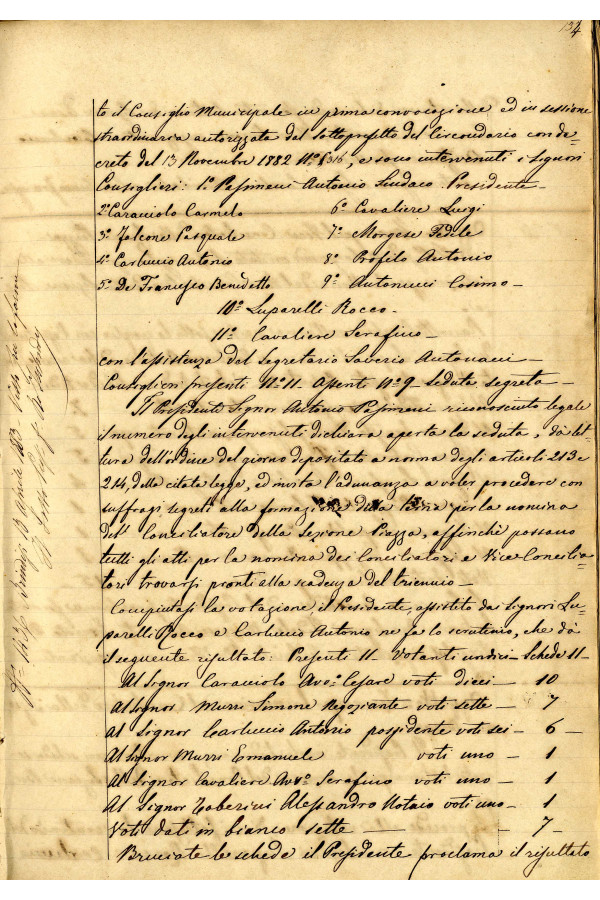 134
to il Consiglio Municipale in prima convocazione ed in sessione
straordinaria autorizzata dal sottoprefetto del Circondario con de=
creto del 13 Novembre 1882 N.° 8316, e sono intervenuti i Signori
Consiglieri: 1.° Passimeni Antonio Sindaco Presidente —
2.° Caracciolo Carmelo 6.° Cavaliere Luigi
3.° Falcone Pasquale 7.° Morgese Fedele
4.° Carluccio Antonio 8.° Profilo Antonio
5.° De Francesco Benedetto 9.° Antonucci Cosimo —
10.° Luparelli Rocco —
11.° Cavaliere Serafino —
con l'assistenza del Segretario Saverio Antonucci —
Consiglieri presenti N.° 11. Assenti N.° 9 — Seduta segreta —
Il Presidente Signor Antonio Passimeni riconosciuto legale
il numero degli intervenuti dichiara aperta la seduta, dà let=
tura dell'ordine del giorno depositato a norma degli articoli 213 e
214 della citata legge, ed invita l'adunanza a voler procedere con
suffragi segreti alla formazione della terna per la nomina
del Conciliatore della Sezione Piazza, affinchè possano
tutti gli atti per la nomina dei Conciliatori e Vice Concilia=
tori trovarsi pronti alla scadenza del triennio —
Compiutasi la votazione il Presidente, assistito dai Signori Lu=
parelli Rocco e Carluccio Antonio ne fa lo scrutinio, che dà
il seguente risultato: Presenti 11 — Votanti undici — Schede 11 —
Al Signor Caracciolo Avv.° Cesare voti dieci — 10
Al Signor Murri Simone Negoziante voti sette — 7
Al Signor Carluccio Antonio possidente voti sei — 6 —
Al Signor Murri Emanuele voti uno — 1
Al Signor Cavaliere Avv.° Serafino voti uno — 1
Al Signor Notaio voti uno — 1
Voti dati in bianco sette — 7 —
Bruciate le schede il Presidente proclama il risultato
N.° 1436 Brindisi 13 Aprile 1883 Visto
Il Sotto Prefetto